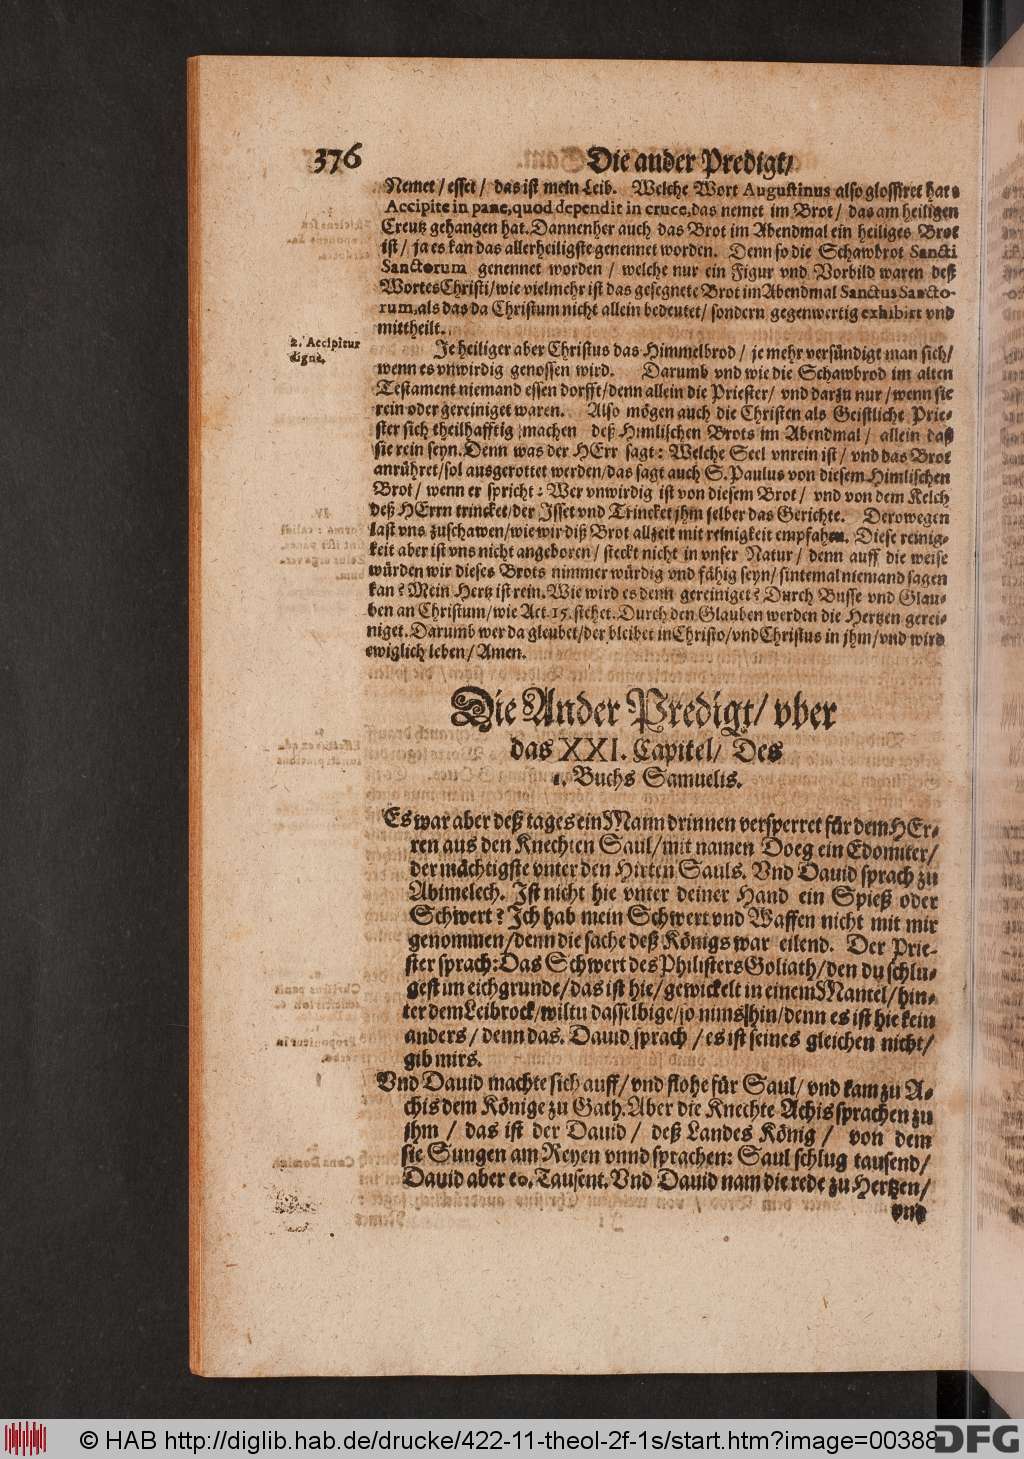 376
Die ander Predigt/
Nemet/ esset/ das ist mein Leib. Welche Wort Augustinus also glossiret hat:
Accipite in pane, quod dependit in cruce, das nemet im Brot/ das am heiligen
Creutz gehangen hat. Dannenher auch das Brot im Abendmal ein heiliges Brot
ist/ ja es kan das allerheiligste genennet worden. Denn so die Schawbrot Sancti
Sanctorum genennet worden/ welche nur ein Figur vnd Vorbild waren deß
Wortes Christi/ wie vielmehr ist das gesegnete Brot im Abendmal Sanctus Sancto-
rum, als das da Christum nicht allein bedeutet/ sondern gegenwertig exhibirt vnd
mittheilt.
2. Accipitur
digne.
Je heiliger aber Christus das Himmelbrod/ je mehr versündigt man sich/
wenn es vnwirdig genossen wird. Darumb vnd wie die Schawbrod im alten
Testament niemand essen dorfft/ denn allein die Priester/ vnd darzu nur/ wenn sie
rein oder gereiniget waren. Also mögen auch die Christen als Geistliche Prie-
ster sich theilhafftig machen deß Himlischen Brots im Abendmal/ allein daß
sie rein seyn. Denn was der HErr sagt: Welche Seel vnrein ist/ vnd das Brot
anrühret/ sol ausgerottet werden/ das sagt auch S. Paulus von diesem Himlischen
Brot/ wenn er spricht: Wer vnwirdig ist von diesem Brot/ vnd von dem Kelch
deß HErrn trincket/ der Isset vnd Trincket jhm selber das Gerichte. Derowegen
last vns zuschawen/ wie wir diß Brot allzeit mit reinigkeit empfahen. Diese reinig-
keit aber ist vns nicht angeboren/ steckt nicht in vnser Natur/ denn auff die weise
würden wir dieses Brots nimmer würdig vnd fähig seyn/ sintemal niemand sagen
kan? Mein Hertz ist rein. Wie wird es denn gereiniget? Durch Busse vnd Glau-
ben an Christum/ wie Act. 15. stehet. Durch den Glauben werden die Hertzen gerei-
niget. Darumb wer da gleubet/ der bleibet in Christo/ vnd Christus in jhm/ vnd wird
ewiglich leben/ Amen.
Die Ander Predigt/ vber
das XXI. Capitel/ Des
1. Buchs Samuelis.
Es war aber deß tages ein Mann drinnen versperret für dem HEr-
ren aus den Knechten Saul/ mit namen Doeg ein Edomiter/
der mächtigste vnter den Hirten Sauls. Vnd Dauid sprach zu
Abimelech. Ist nicht hie vnter deiner Hand ein Spieß oder
Schwert? Ich hab mein Schwert vnd Waffen nicht mit mir
genommen/ denn die sache deß Königs war eilend. Der Prie-
ster sprach: Das Schwert des Philisters Goliath/ den du schlu-
gest im eichgrunde/ das ist hie/ gewickelt in einem Mantel/ hin-
ter dem Leibrock/ wiltu dasselbige/ so nims hin/ denn es ist hie kein
anders/ denn das. Dauid sprach/ es ist seines gleichen nicht/
gib mirs.
Vnd Dauid machte sich auff/ vnd flohe für Saul/ vnd kam zu A-
chis dem Könige zu Gath. Aber die Knechte Achis sprachen zu
jhm/ das ist der Dauid/ deß Landes König/ von dem
sie Sungen am Reyen vnnd sprachen: Saul schlug tausend/
Dauid aber 10. Tausent. Vnd Dauid nam die rede zu Hertzen/
vnd
© HAB http://diglib.hab.de/drucke/422-11-theol-2f-1s/start.htm?image=00388
DFG